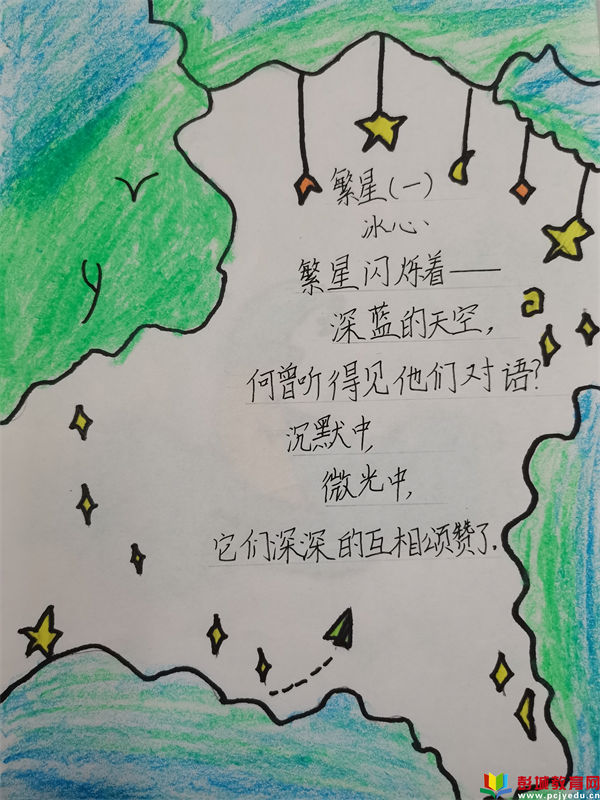 繁星(一)
冰心
繁星闪烁着——
深蓝的天空,
何曾听得见他们对语?
沉默中,
微光中,
它们深深的互相颂赞了.
彭城教育网
www.pcjyedu.cn